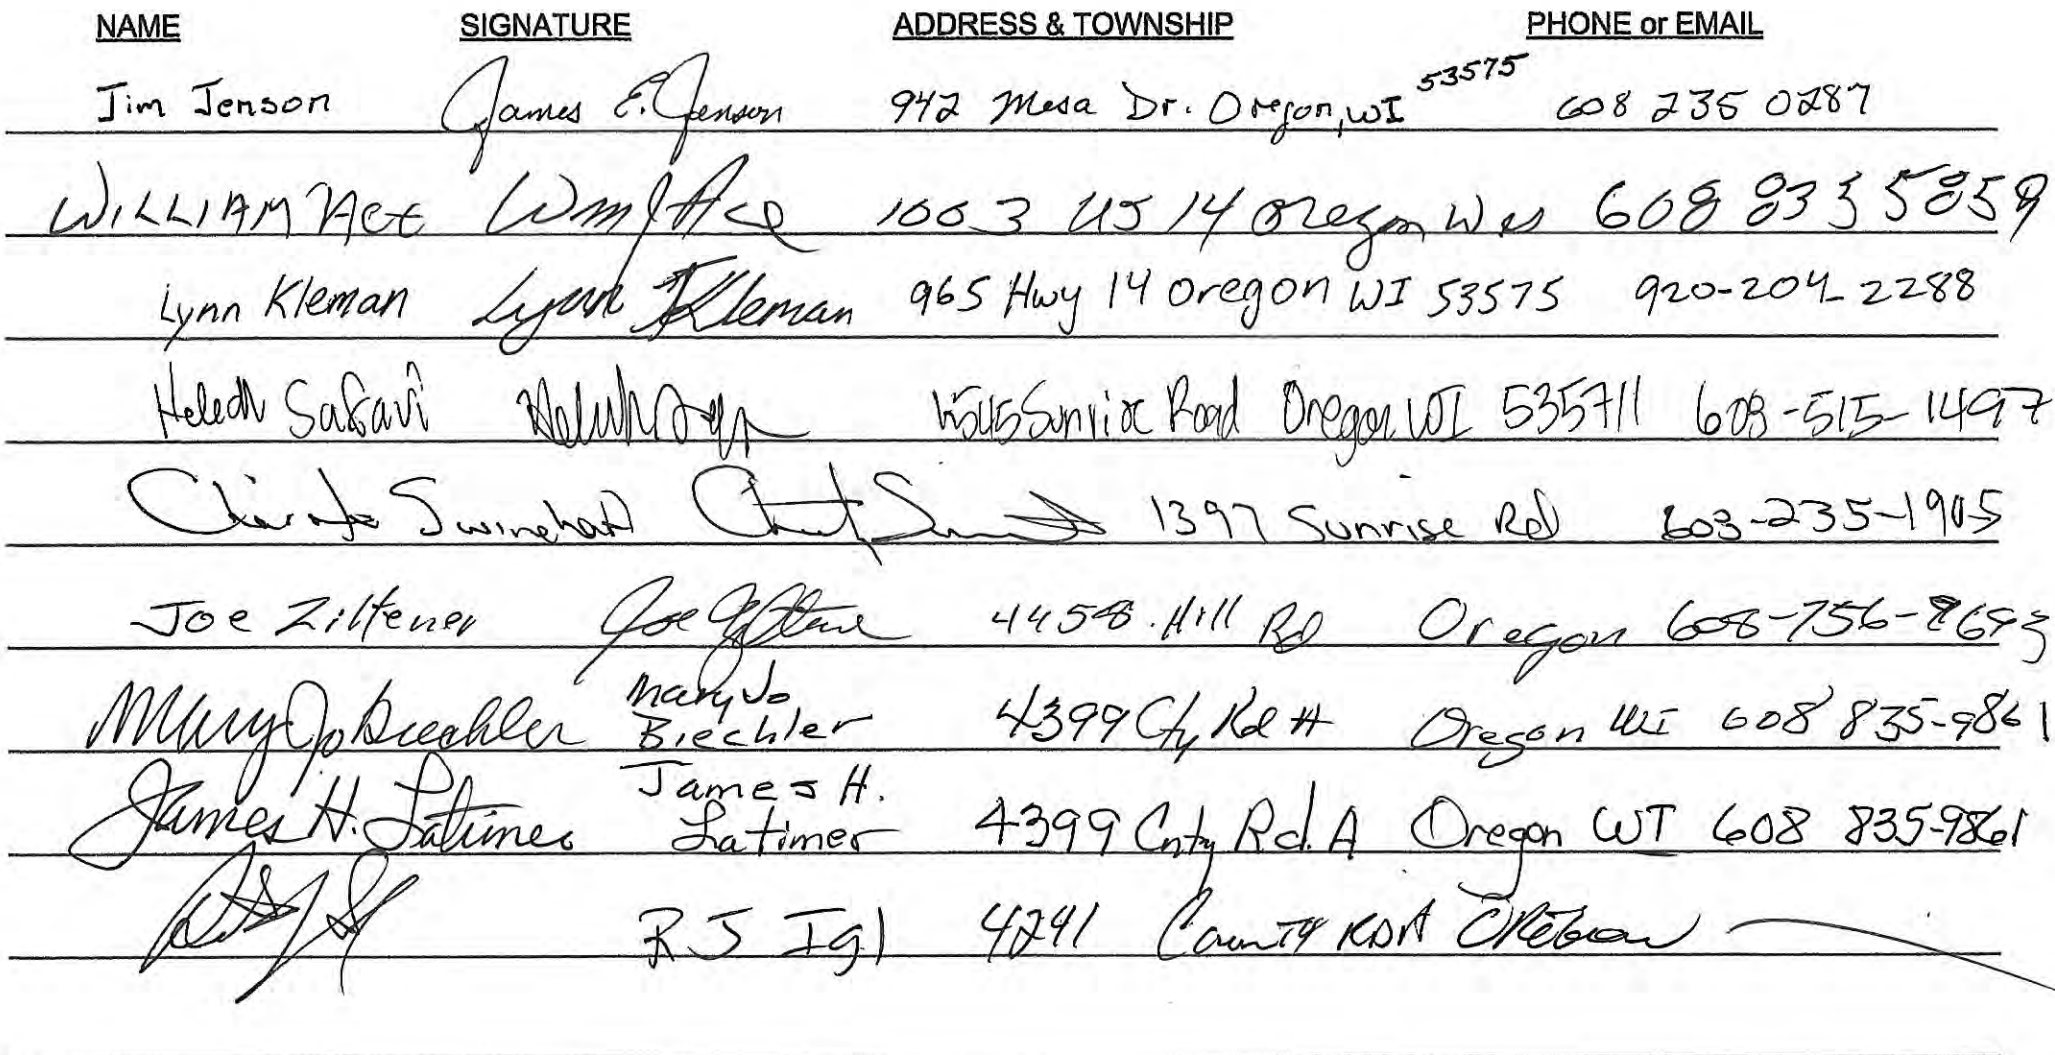 NAME SIGNATURE ADDRESS & TOWNSHIP PHONE or EMAIL
Jim Jenson James E. Jenson 942 Mesa Dr. Oregon, WI 53575 608 235 0287
WILLIAM Ace Wm J Ace 1003 US 14 Oregon Wis 608 835 5859
Lynn Kleman Lynn Kleman 965 Hwy 14 Oregon WI 53575 920-204-2288
Heledh Safavi Sunrise Road Oregon, WI 608-515-1497
Swinehart 1397 Sunrise Rd 603-235-1905
Joe Ziltener Joe Ziltener 4458 Hill Rd Oregon 608-756-
Mary Jo Biechler Mary Jo Biechler 4399 Cty Rd A Oregon WI 608 835-9861
James H. Latimer James H. Latimer 4399 Cnty Rd. A Oregon WI 608 835-9861
R J Igl 4241 County RD A OREGON